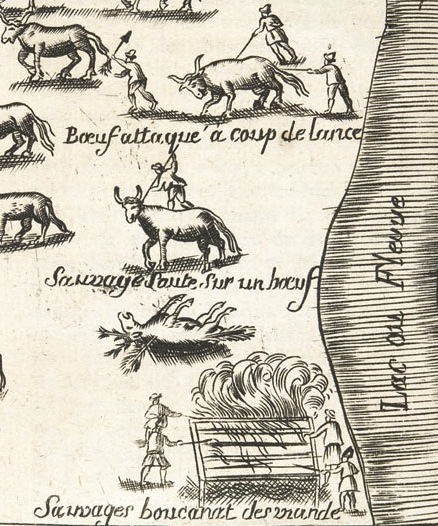 Bœuf attaqué a coup de lance
Sauvage saute sur un bœuf
Lac ou Fleuve
Sauvages boucanat des viande